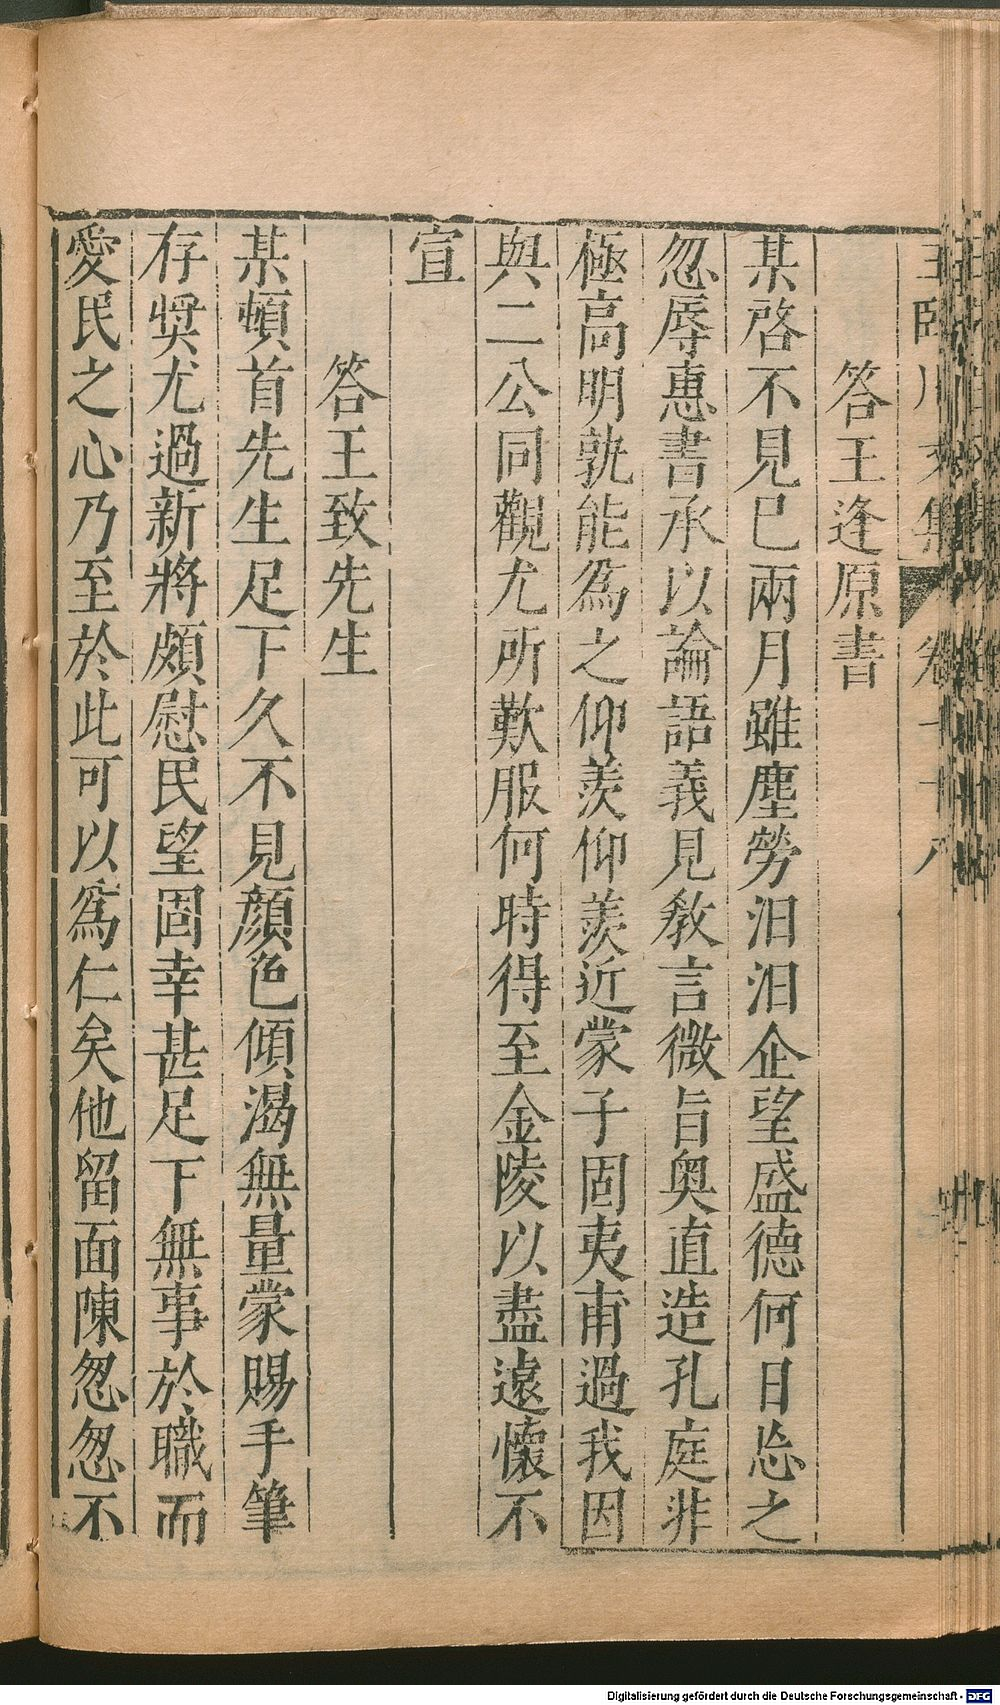 王臨川文集 卷七十八
答王逢原書
某啓不見已兩月雖塵勞汨汨企望盛德何日忘之
忽辱惠書承以論語義見敎言微旨奥直造孔庭非
極高明孰能爲之仰羨仰羨近蒙子固夷甫過我因
與二公同觀尤所歎服何時得至金陵以盡遠懷不
宣
答王致先生
某頓首先生足下久不見顔色傾渴無量蒙賜手筆
存奬尤過新將頗慰民望固幸甚足下無事於職而
愛民之心乃至於此可以爲仁矣他留面陳怱怱不
Digitalisierung gefördert durch die Deutsche Forschungsgemeinschaft - DFG